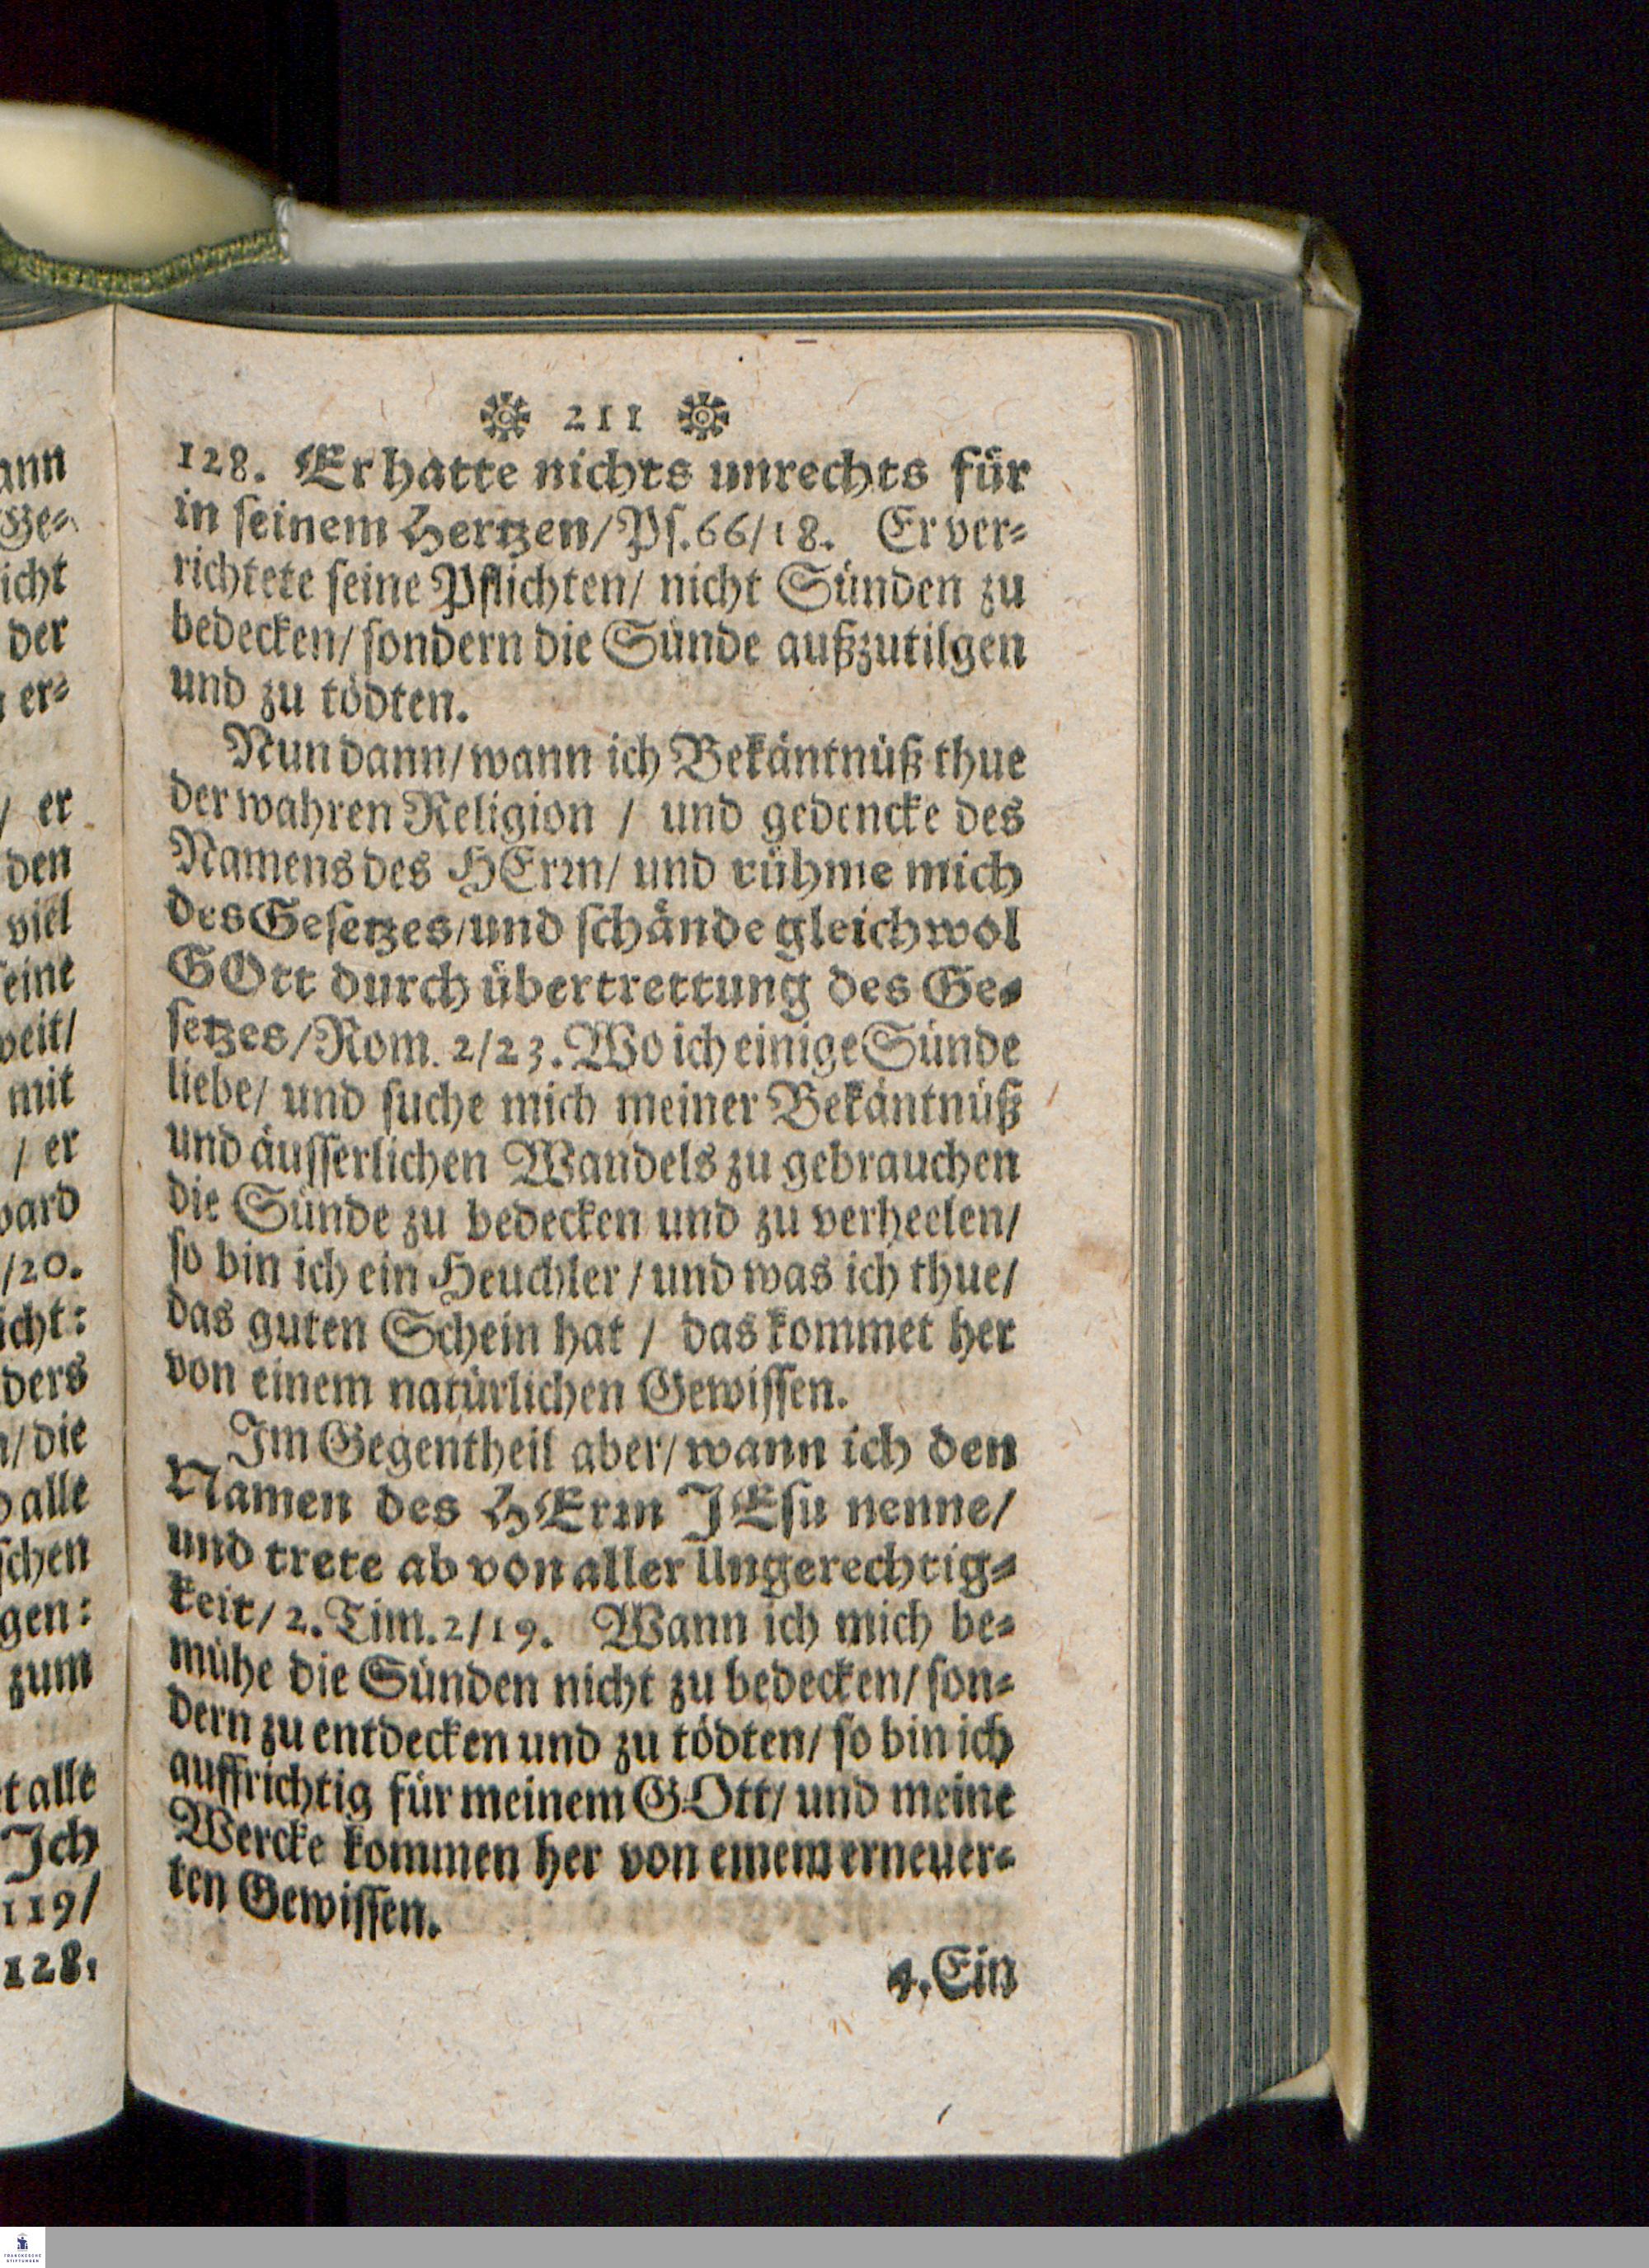 ann
Ge-
icht
der
er-
/ er
den
viel
seine
weit/
mit
/ er
ward
/20.
icht:
ders
n/die
alle
schen
gen:
zum
alle
Ich
119/
128.
211
128. Er hatte nichts unrechts für
in seinem Hertzen/Ps.66/18. Er ver-
richtete seine Pflichten/ nicht Sünden zu
bedecken/ sondern die Sünde außzutilgen
und zu tödten.
Nun dann/wann ich Bekäntnüß thue
der wahren Religion / und gedencke des
Namens des HErrn/ und rühme mich
des Gesetzes/und schände gleichwol
GOtt durch übertrettung des Ge-
setzes/Rom. 2/23. Wo ich einige Sünde
liebe/ und suche mich meiner Bekäntnüß
und äusserlichen Wandels zu gebrauchen
die Sünde zu bedecken und zu verheelen/
so bin ich ein Heuchler / und was ich thue/
das guten Schein hat / das kommet her
von einem natürlichen Gewissen.
Im Gegentheil aber/wann ich den
Namen des HErrn JEsu nenne/
und trete ab von aller Ungerechtig-
keit/ 2. Tim.2/19. Wann ich mich be-
mühe die Sünden nicht zu bedecken/ son-
dern zu entdecken und zu tödten/ so bin ich
auffrichtig für meinem GOtt/ und meine
Wercke kommen her von einem erneuer-
ten Gewissen.
4. Ein
FRANCKESCHE
STIFTUNGEN